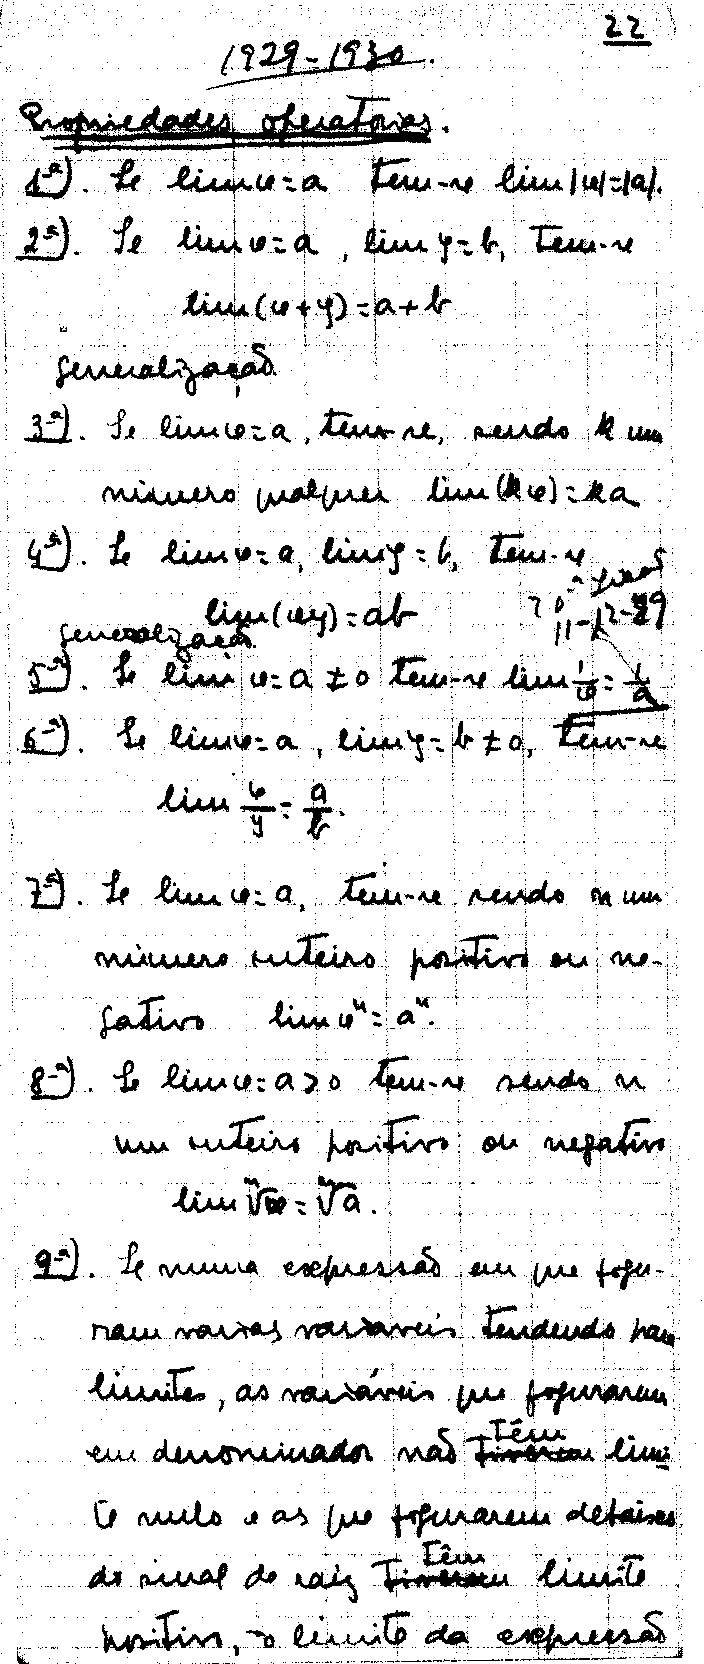 22
1929-1930.
Propriedades operatorias.
1ª). Se lim φ = a tem-se lim |φ| = |a|.
2ª). Se lim φ = a, lim y = b, tem-se
lim (φ + y) = a + b
generalização
3ª). Se lim φ = a, tem-se, sendo k um
número qualquer lim (kφ) = ka
4ª). Se lim φ = a, lim y = b, tem-se
lim (φy) = ab
11-12-29
generalização
5ª). Se lim φ = a ≠ 0 tem-se lim 1/φ = 1/a
6ª). Se lim φ = a, lim y = b ≠ 0, tem-se
lim φ/y = a/b.
7ª). Se lim φ = a, tem-se sendo n um
número inteiro positivo ou ne-
gativo lim φⁿ = aⁿ.
8ª). Se lim φ = a > 0 tem-se sendo n
um inteiro positivo ou negativo
lim ⁿ√φ = ⁿ√a.
9ª). Se numa expressão em que figu-
ram varias variaveis tendendo para
limites, as variáveis que figurarem
em denominador não têm limi
te nulo e as que figurarem debaixo
do sinal de raiz têm limite
positivo, o limite da expressão